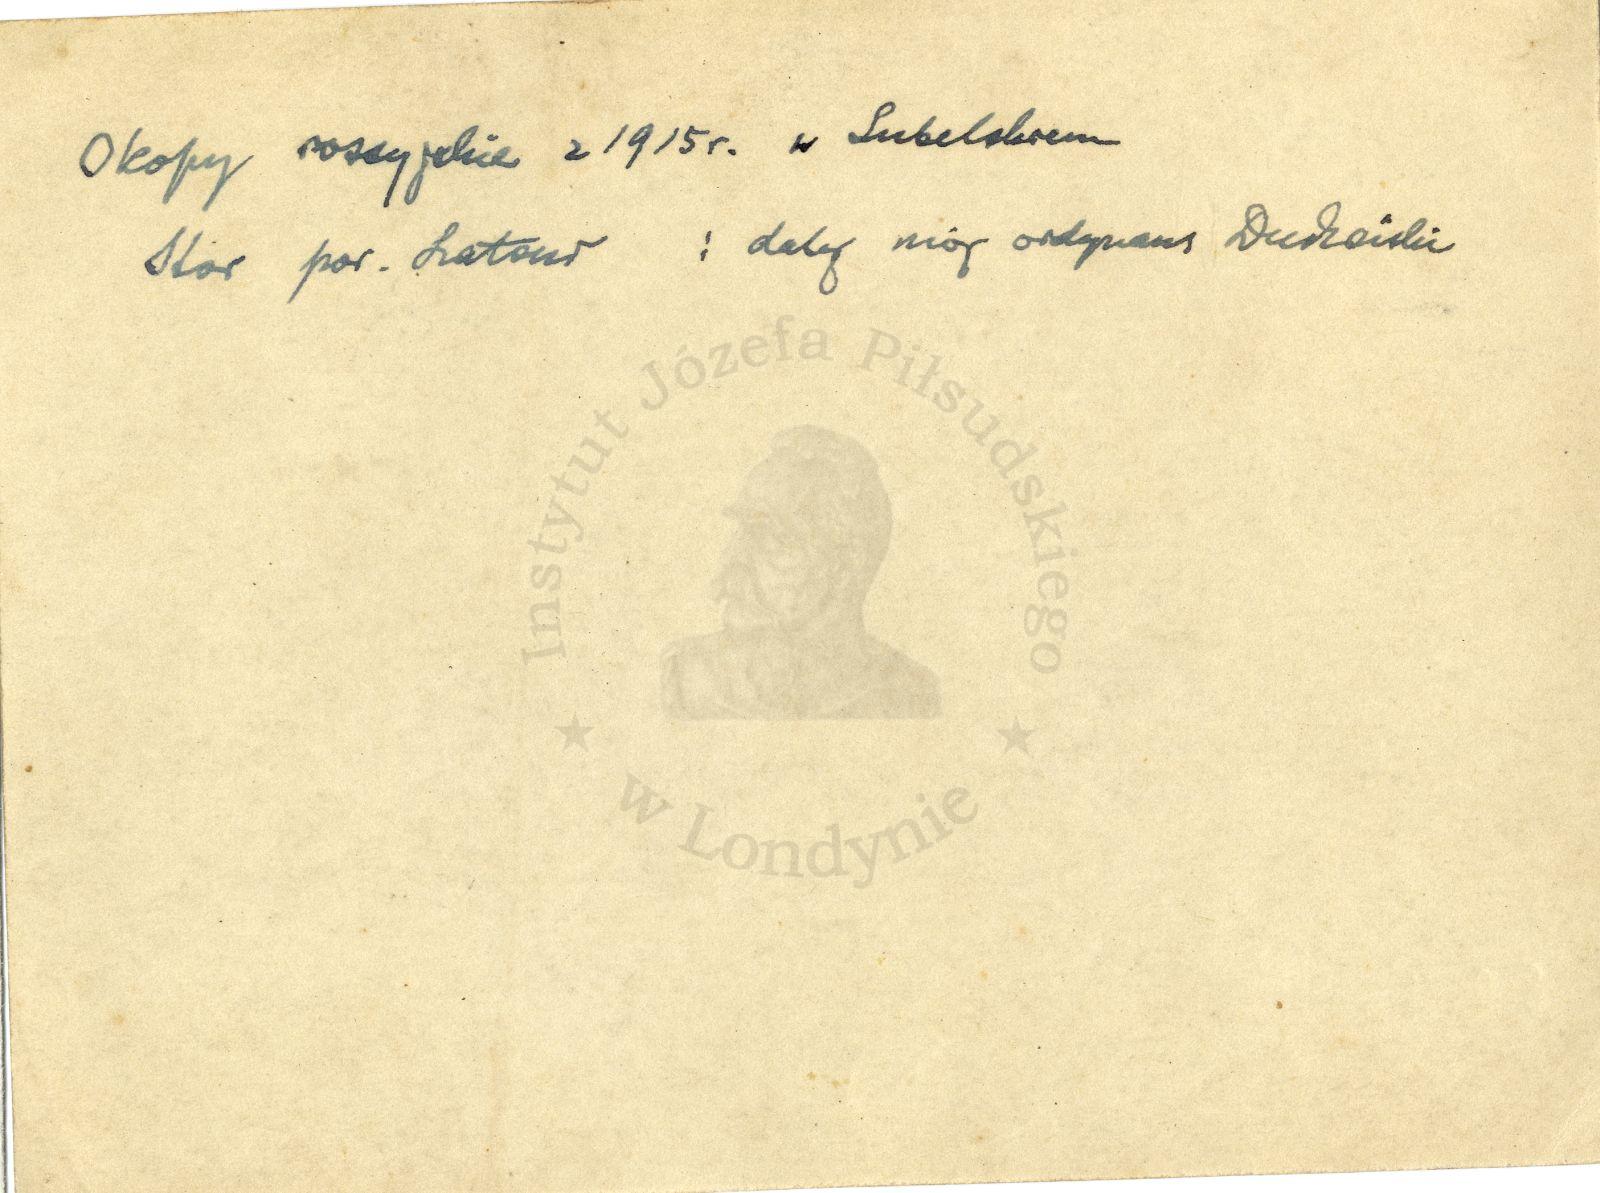 Okopy rossyjskie z 1915 r. w Lubelskiem
por. : dalej mój ordynans
Instytut Józefa Piłsudskiego
w Londynie